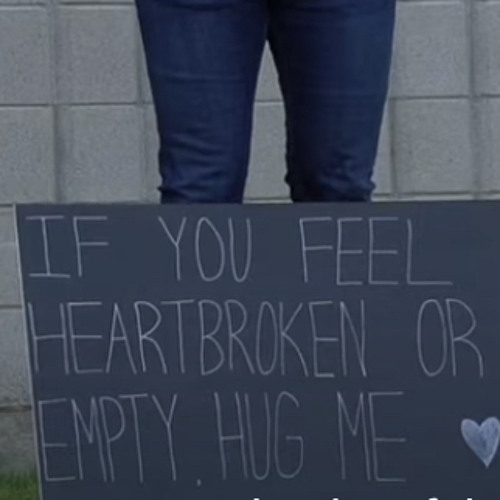 IF YOU FEEL
HEARTBROKEN OR
EMPTY. HUG ME